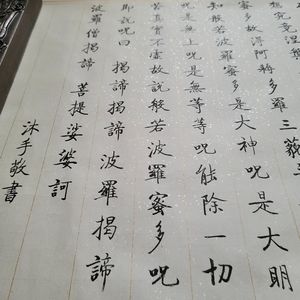 究竟涅
蜜多故得阿耨多羅三藐三
知般若波羅蜜多是大神咒是大明
咒是無上咒是無等等咒能除一切
苦真實不虛故說般若波羅蜜多咒
即說咒曰 揭諦揭諦 波羅揭諦
波羅僧揭諦 菩提娑婆訶
沐手敬書